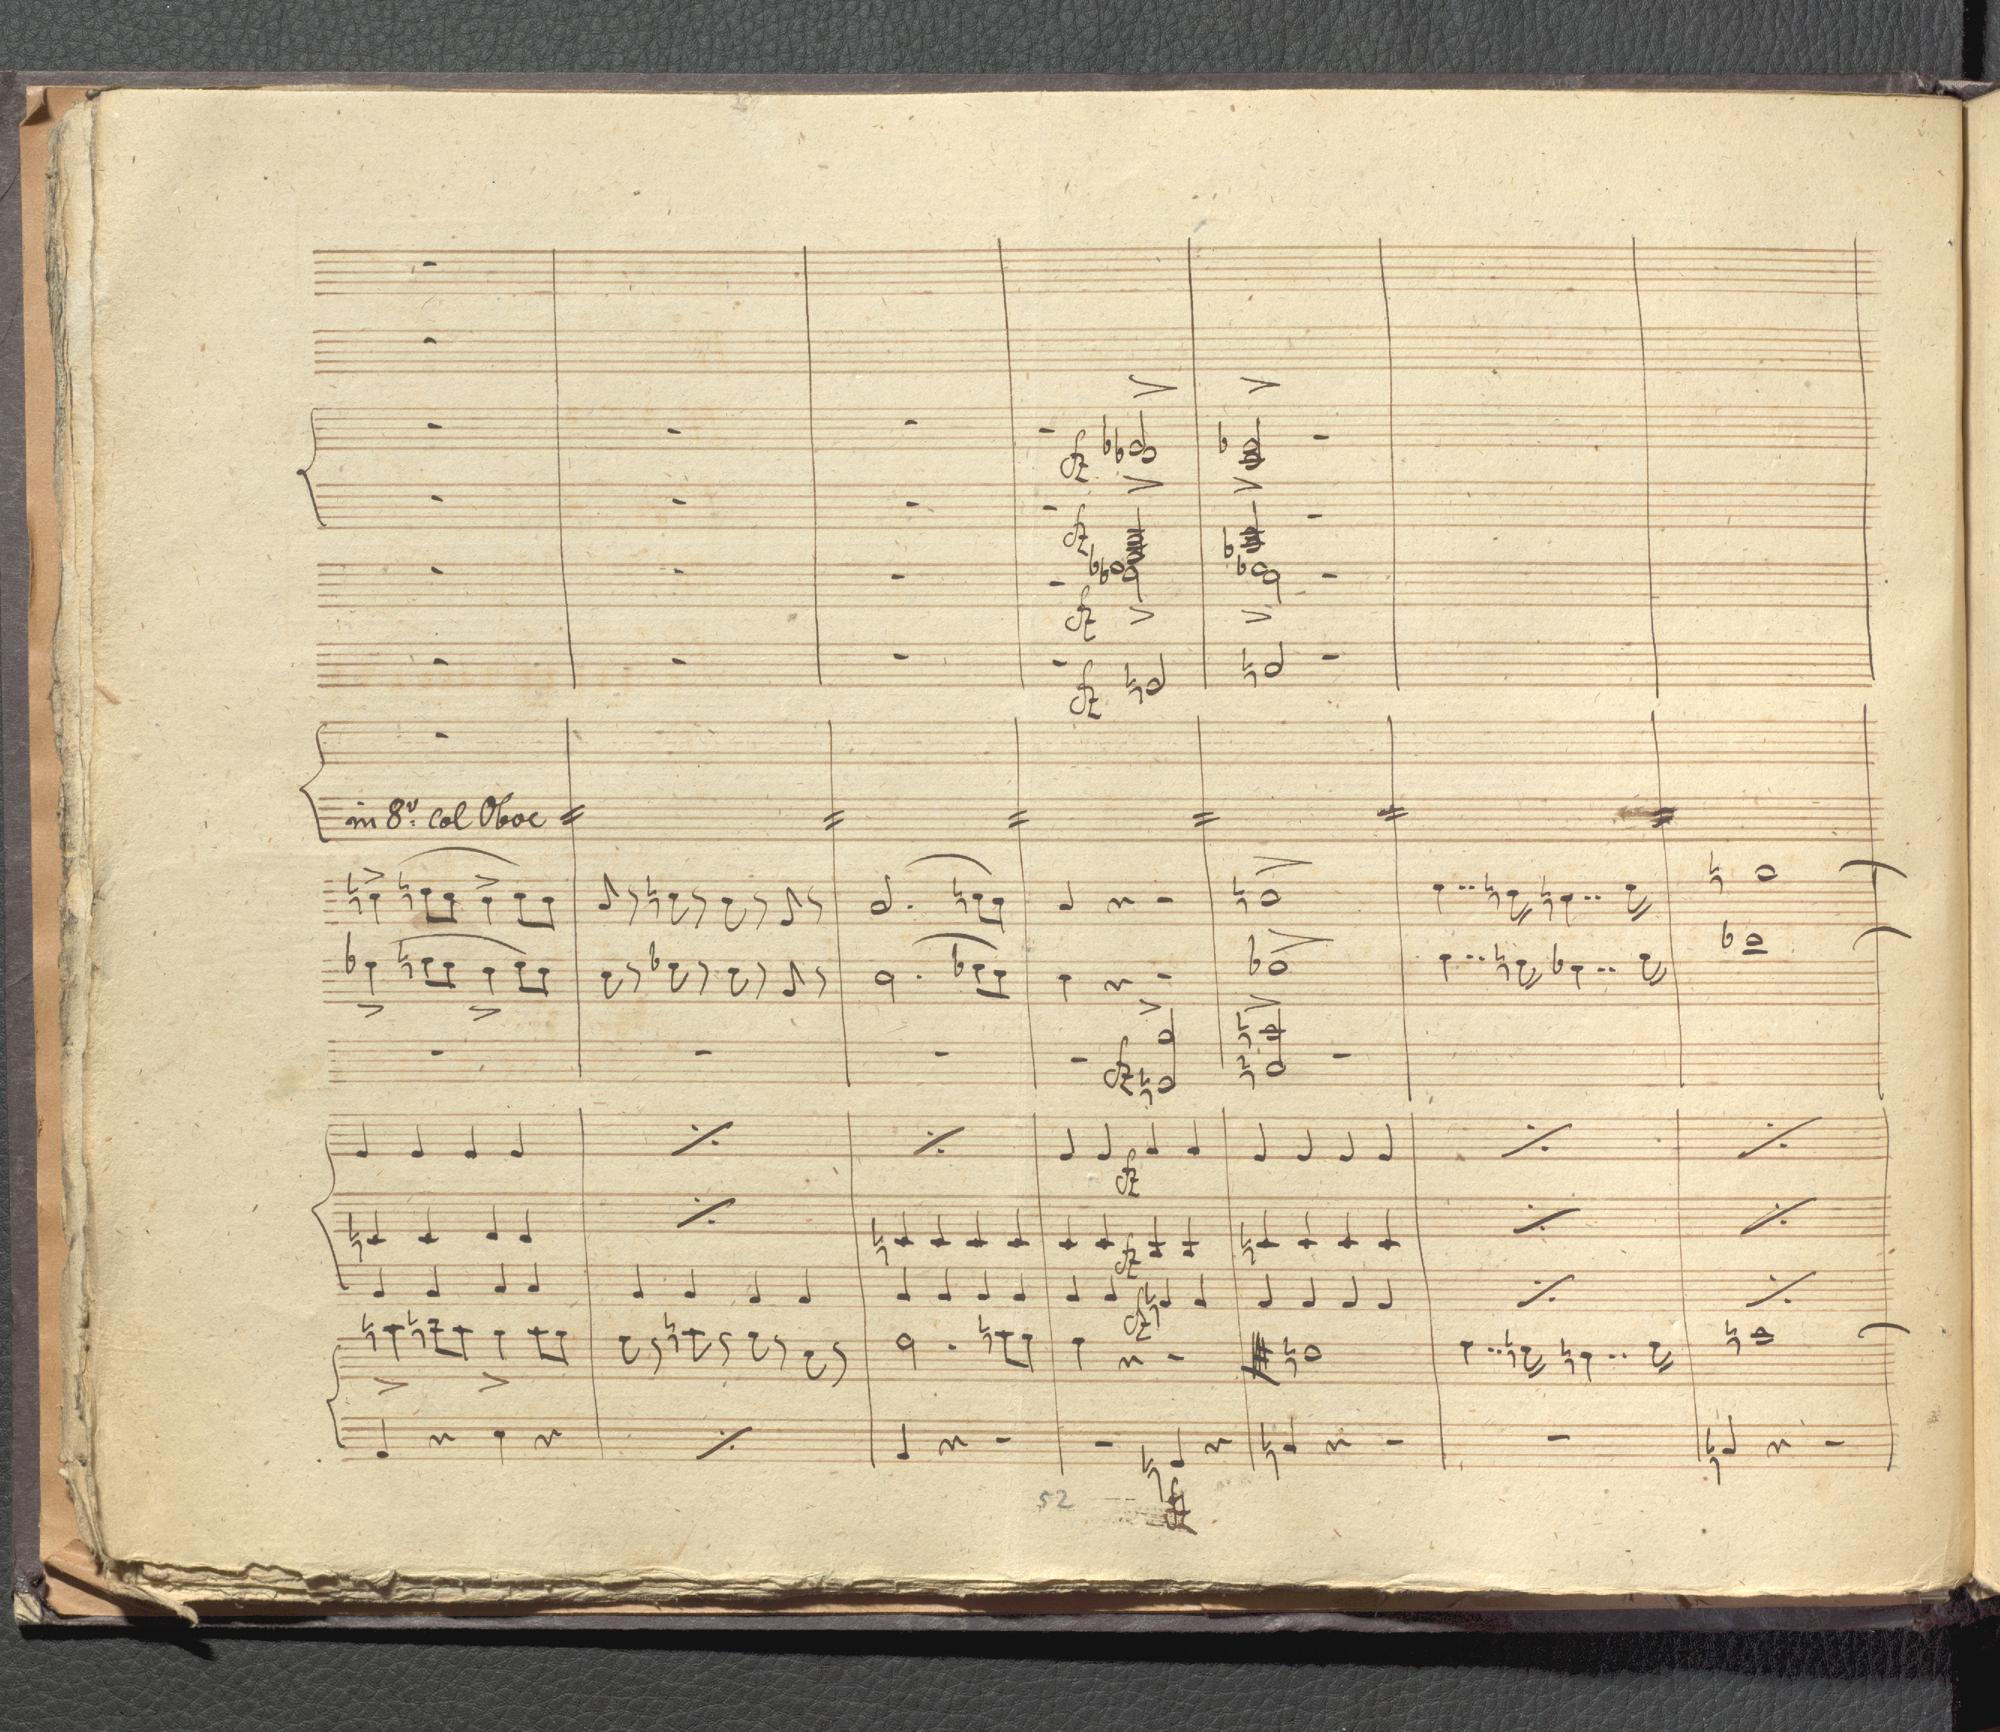 fz
fz
fz
fz
in 8v: col Oboe
fz
fz
fz
fz
52
fz